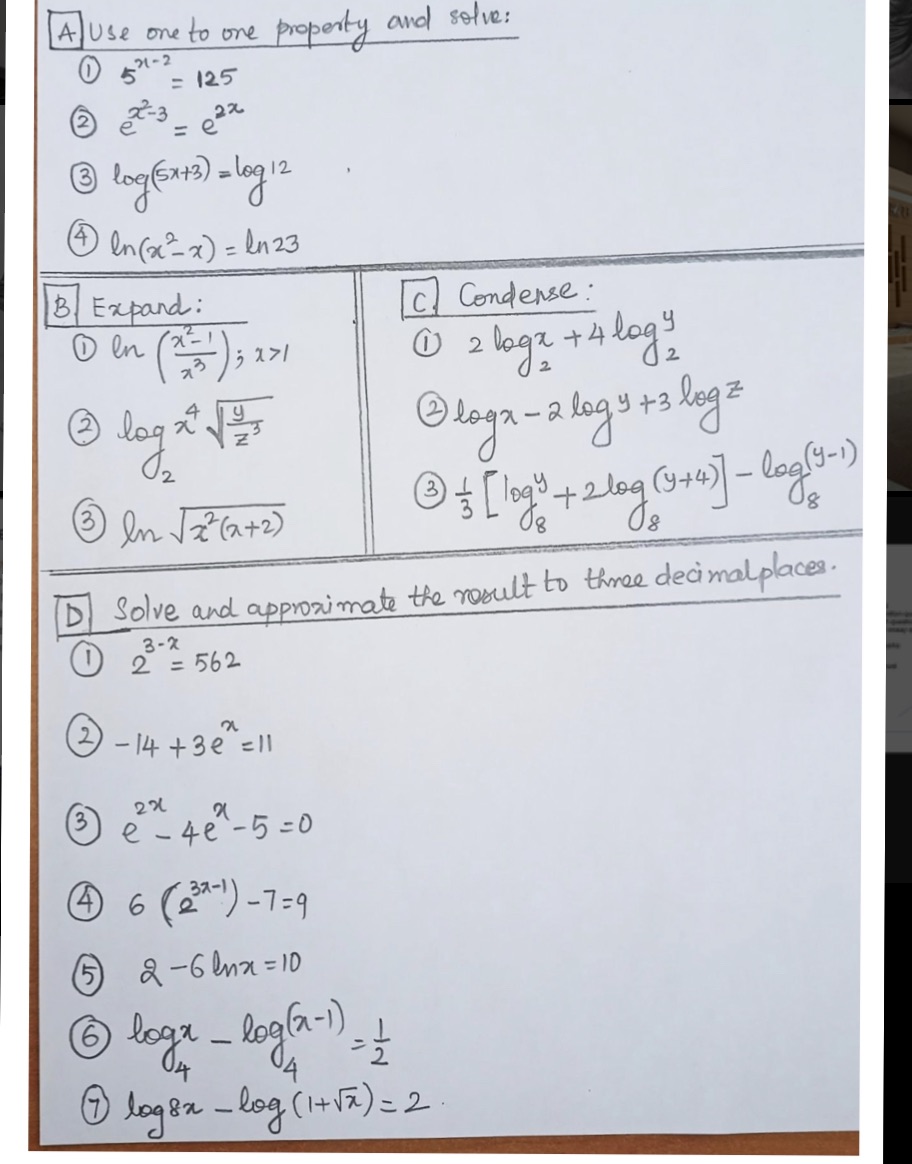 A Use one to one property and solve:
① 5^(x-2) = 125
② e^(x²-3) = e^(2x)
③ log(5x+3) = log 12
④ ln(x²-x) = ln 23
B Expand:
① ln ((x²-1)/x³); x>1
② log₂ x⁴ √(y/z³)
③ ln √(x²(x+2))
C Condense:
① 2 log₂ x + 4 log₂ y
② log x - 2 log y + 3 log z
③ 1/3 [log₈ y + 2 log₈ (y+4)] - log₈ (y-1)
D Solve and approximate the result to three decimal places.
① 2^(3-x) = 562
② -14 + 3e^x = 11
③ e^(2x) - 4e^x - 5 = 0
④ 6 (2^(3x-1)) - 7 = 9
⑤ 2 - 6 ln x = 10
⑥ log₄ x - log₄ (x-1) = 1/2
⑦ log 8x - log (1+√x) = 2.